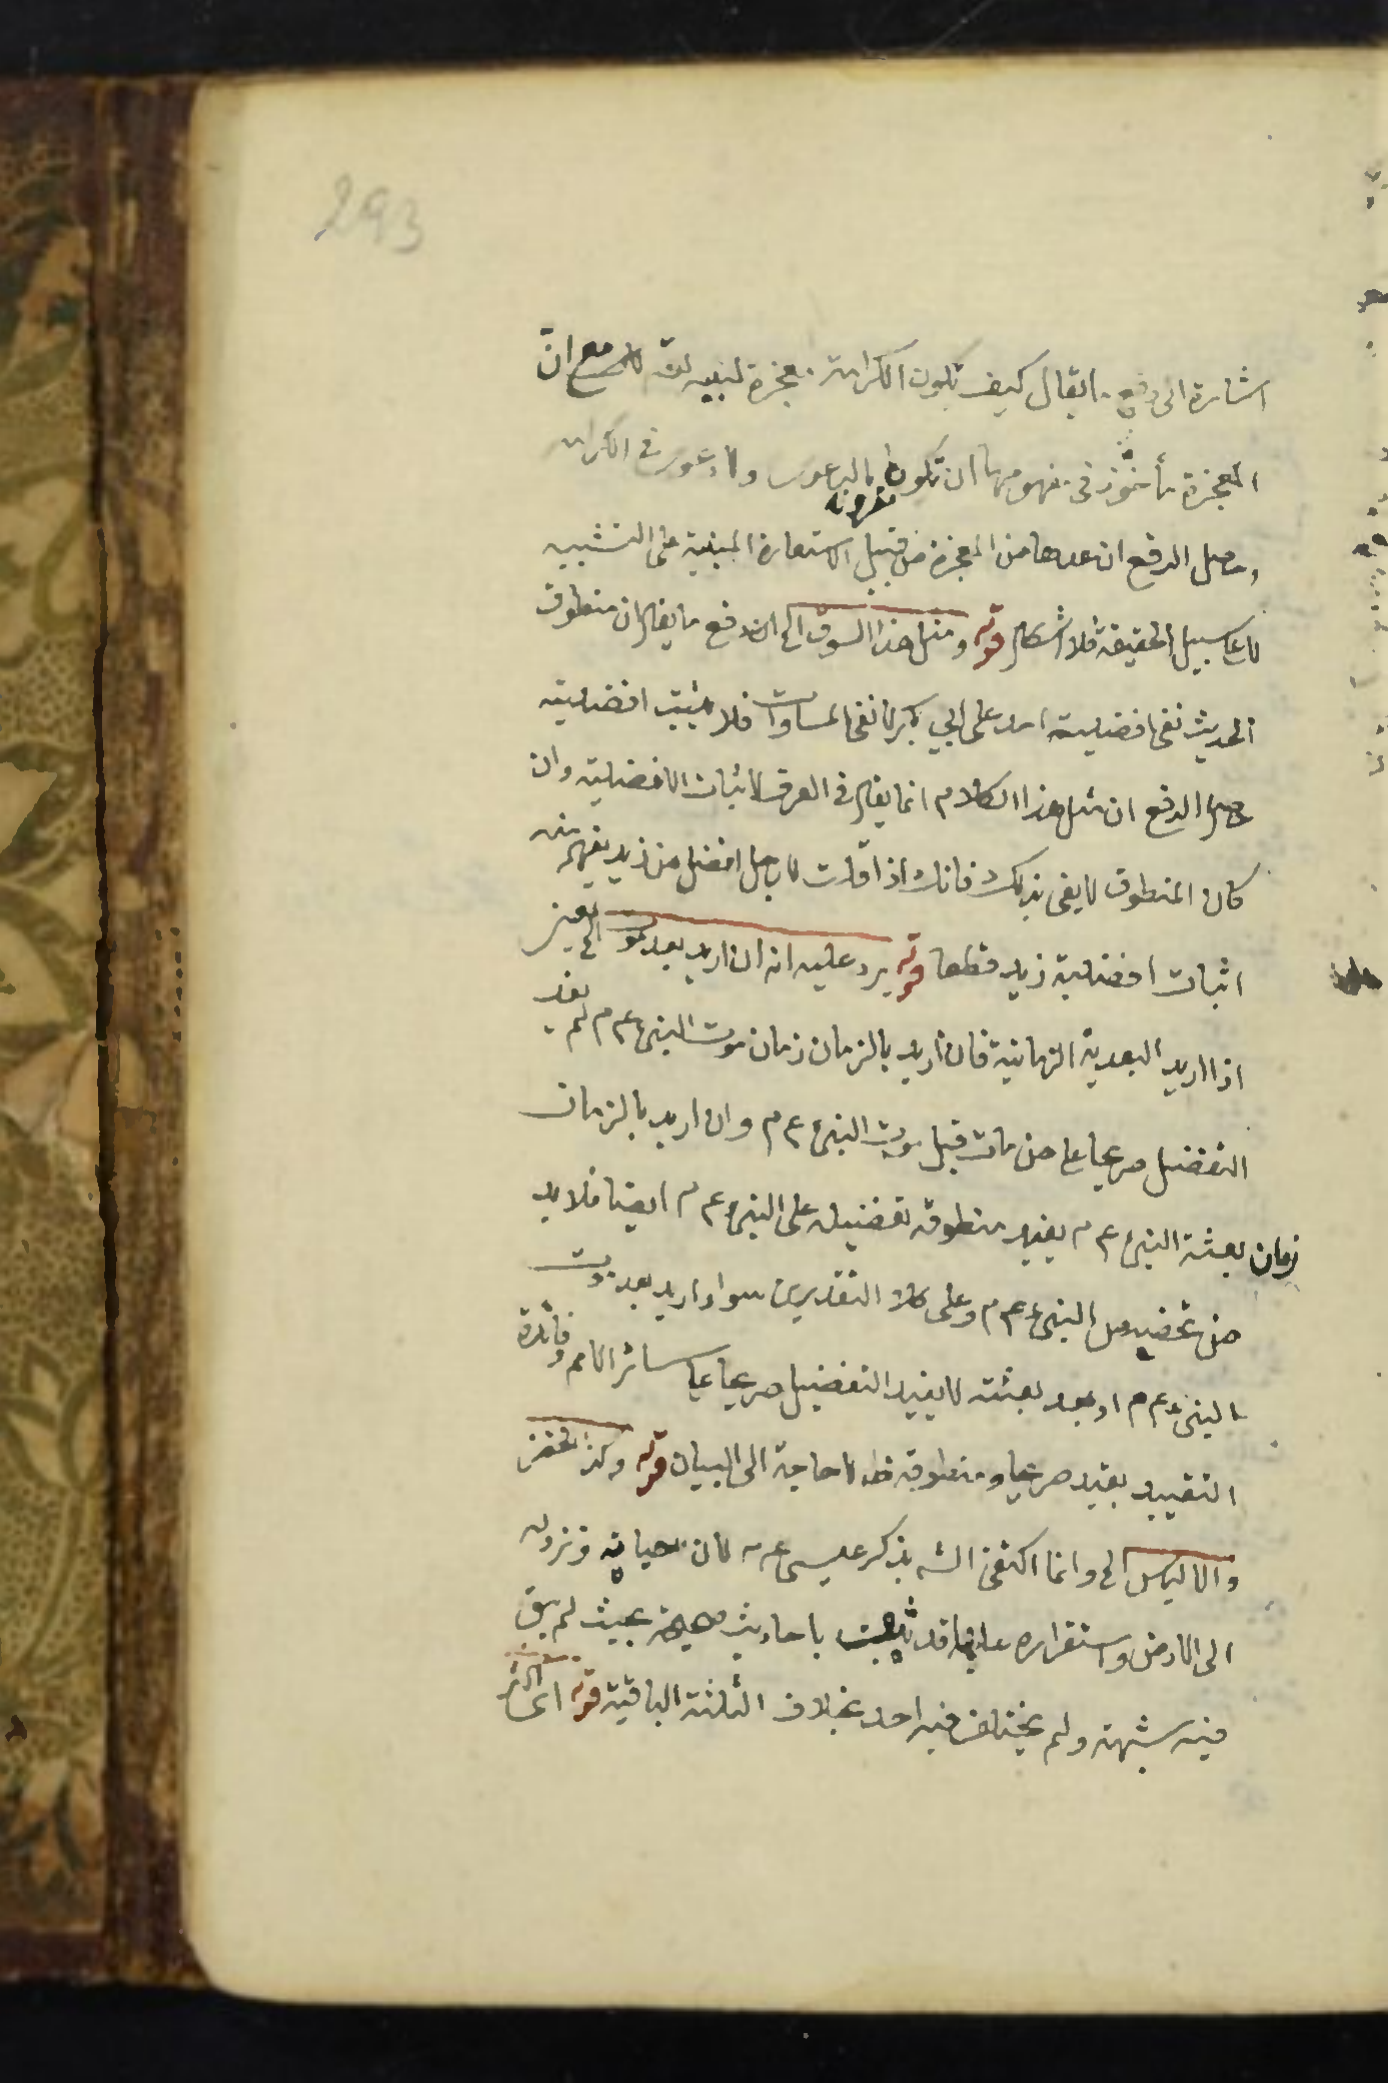 293
اشارة الى دفع ما يقال كيف تكون الكرامة معجزة لنبيه مع ان
المعجزة مأخوذ فى مفهومها ان تكون مقرونة بالدعوى ولا دعوى فى الكرامة
وحاصل الدفع ان عدها من المعجزة من قبيل الاستعارة المبنية على التشبيه
لا على سبيل الحقيقة فلا اشكال قوله ومثل هذا السوق الخ اندفع ما يقال ان منطوق
الحديث نفى افضلية احد على ابي بكر لا نفى المساوات فلا يثبت افضليته
حاصل الدفع ان مثل هذا الكلام انما يقال فى العرف لاثبات الافضلية وان
كان المنطوق لا يفى بذلك فانك اذا قلت لا رجل افضل من زيد يفهم منه
اثبات افضلية زيد قطعا قوله يرد عليه انه ان اريد بعد موته الخ يعنى
اذا اريد البعدية الزمانية فان اريد بالزمان زمان موت النبى ع م لم يفد
التفضيل صريحا على من مات قبل موت النبى ع م وان اريد بالزمان
زمان بعثة النبى ع م يفيد منطوقه تفضيله على النبى ع م ايضا فلا بد
من تخصيص النبى ع م وعلى كلا التقديرين سواء اريد بعد موت
النبى ع م او بعد بعثته لا يفيد التفضيل صريحا على سائر الامم وفائدة
التقييد بقيد صريحا ومنطوقه ظ لا حاجة الى البيان قوله وكذا الخضر
والالياس الخ وانما اكتفى الشه بذكر عيسى ع م لان حياته ونزوله
الى الارض واستقراره عليها قد ثبت باحاديث صحيحة بحيث لم يبق
فيه شبهة ولم يختلف فيه احد بخلاف الثلثة الباقية قوله اى اكثر